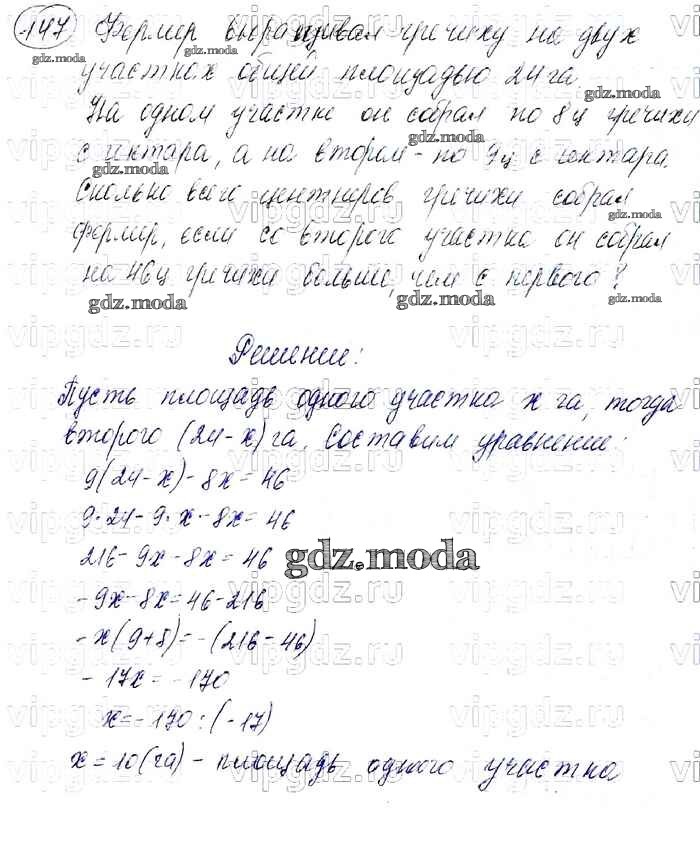 147 Фермер выращивал гречиху на двух
участках общей площадью 24 га.
На одном участке он собрал по 8ц гречихи
с гектара, а на втором - по 9ц с гектара.
Сколько всего центнеров гречихи собрал
фермер, если со второго участка он собрал
на 46ц гречихи больше, чем с первого?
gdz.moda
Решение:
Пусть площадь одного участка x га, тогда
второго (24-x) га. Составим уравнение:
9(24-x)-8x=46
9·24-9·x-8x=46
216-9x-8x=46
gdz.moda
-9x-8x=46-216
-x(9+8)=-(216-46)
-17x=-170
x=-170:(-17)
x=10(га) - площадь одного участка
vipgdz.ru